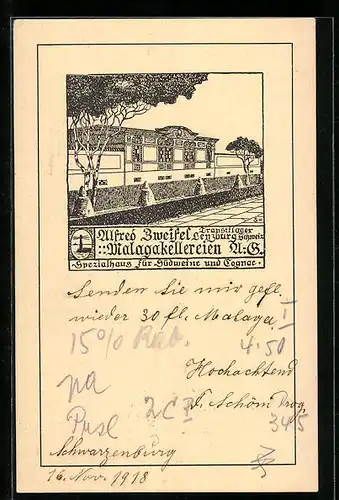 Alfred Zweifel
Transitlager
Lenzburg Schweiz
::Malagakellereien A.-G.
Spezialhaus für Südweine und Cognac
Senden Sie mir gefl.
wieder 30 fl. Malaga I
15% Rab. 4.50
Hochachtend
F. Schöm Drog.
345
Schwarzenburg
16. Nov. 1918